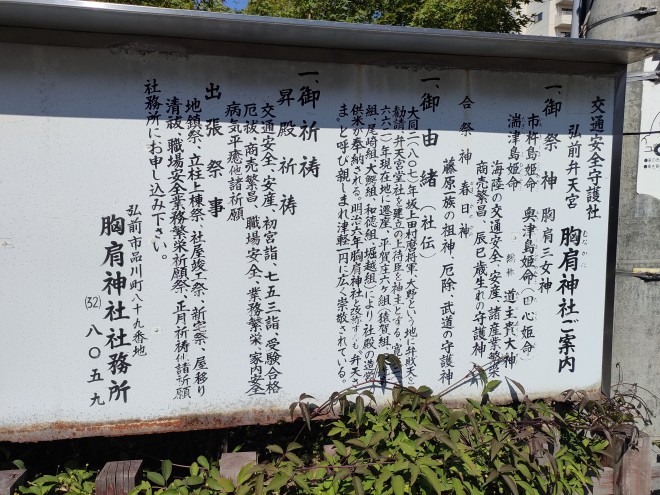 交通安全守護社
弘前弁天宮 胸肩神社ご案内
むなかた
一、御祭神 胸肩三女神
市杵島姫命 奥津島姫命(田心姫命)
湍津島姫命 総称 道主貴大神
海陸の交通安全・安産、諸産業繁栄
商売繁昌、辰巳歳生れの守護神
合祭神 春日神
藤原一族の祖神、厄除、武道の守護神
一、御由緒(社伝)
大同二(八〇七)年坂上田村麿将軍、大野という地に弁財天を
勧請、弁天宮堂社を建立の上侍臣を神主とする。寛
六六二)年現在地に遷座、平賀庄六ヶ組(猿賀組、
組、尾崎組、大鰐組、和徳組、堀越組)により社殿の造営
供米が奉納される。明治六年胸肩神社と改称するも「弁天
ま」と呼び親しまれ津軽一円に広く崇敬されている。
一、御祈祷
昇殿祈祷
交通安全、安産、初宮詣、七五三詣、受験合格
厄祓、商売繁昌、職場安全、業務繁栄、家内安全
病気平癒他諸祈願
出張祭事
地鎮祭、立柱上棟祭、社屋竣工祭、新宅祭、屋移り
清祓、職場安全業務繁栄祈願祭、正月祈祷他諸祈願
社務所にお申し込み下さい。
弘前市品川町八十九番地
胸肩神社社務所
(32)八〇五九